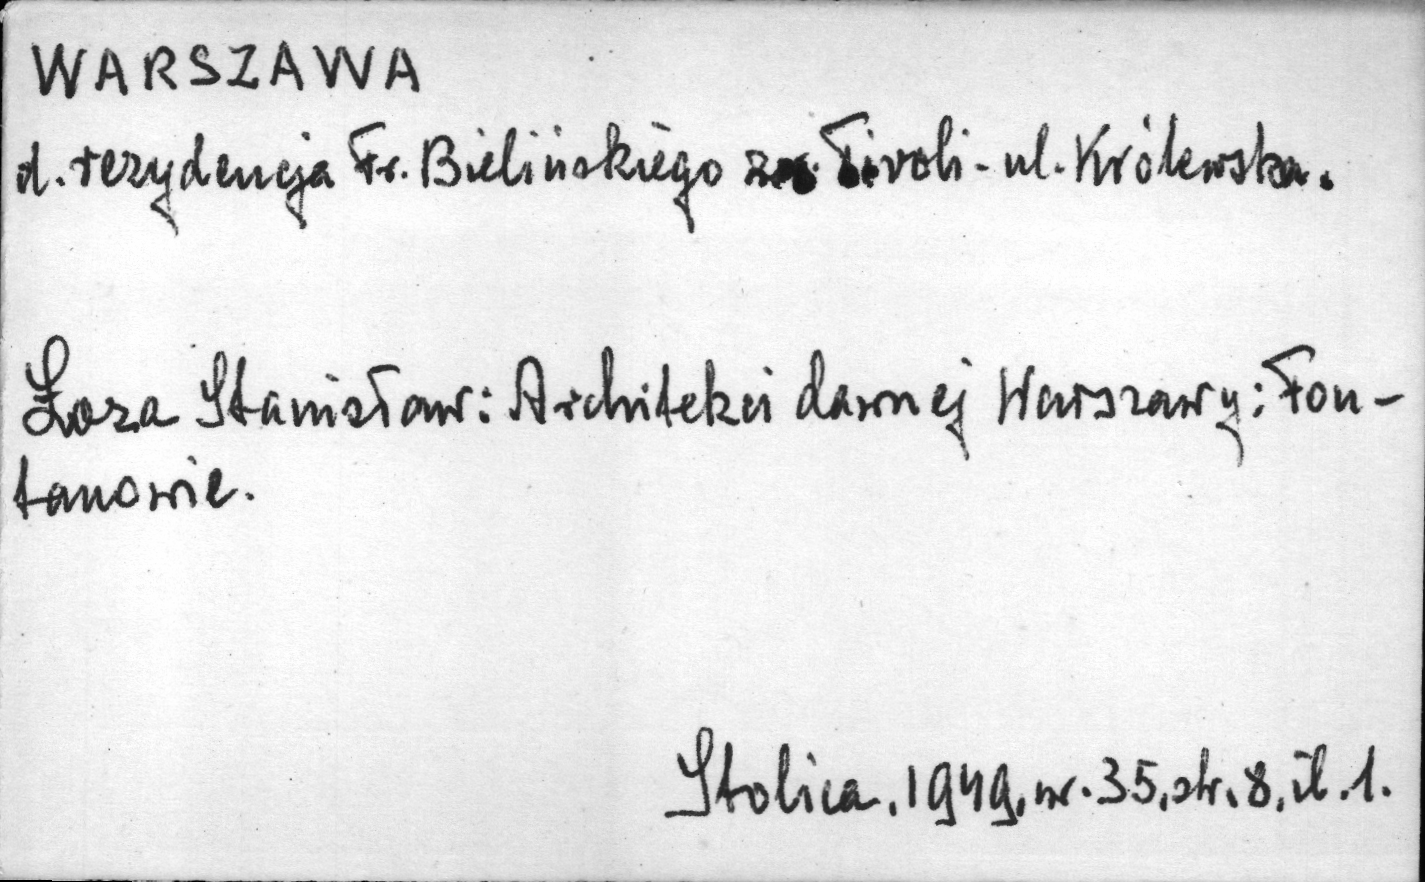 WARSZAWA
d. rezydencja Fr. Bielińskiego zw. Tivoli - ul. Królewska.
Łoza Stanisław: Architekci dawnej Warszawy: Fon-
tanowie.
Stolica, 1949, nr. 35, str. 8, il. 1.